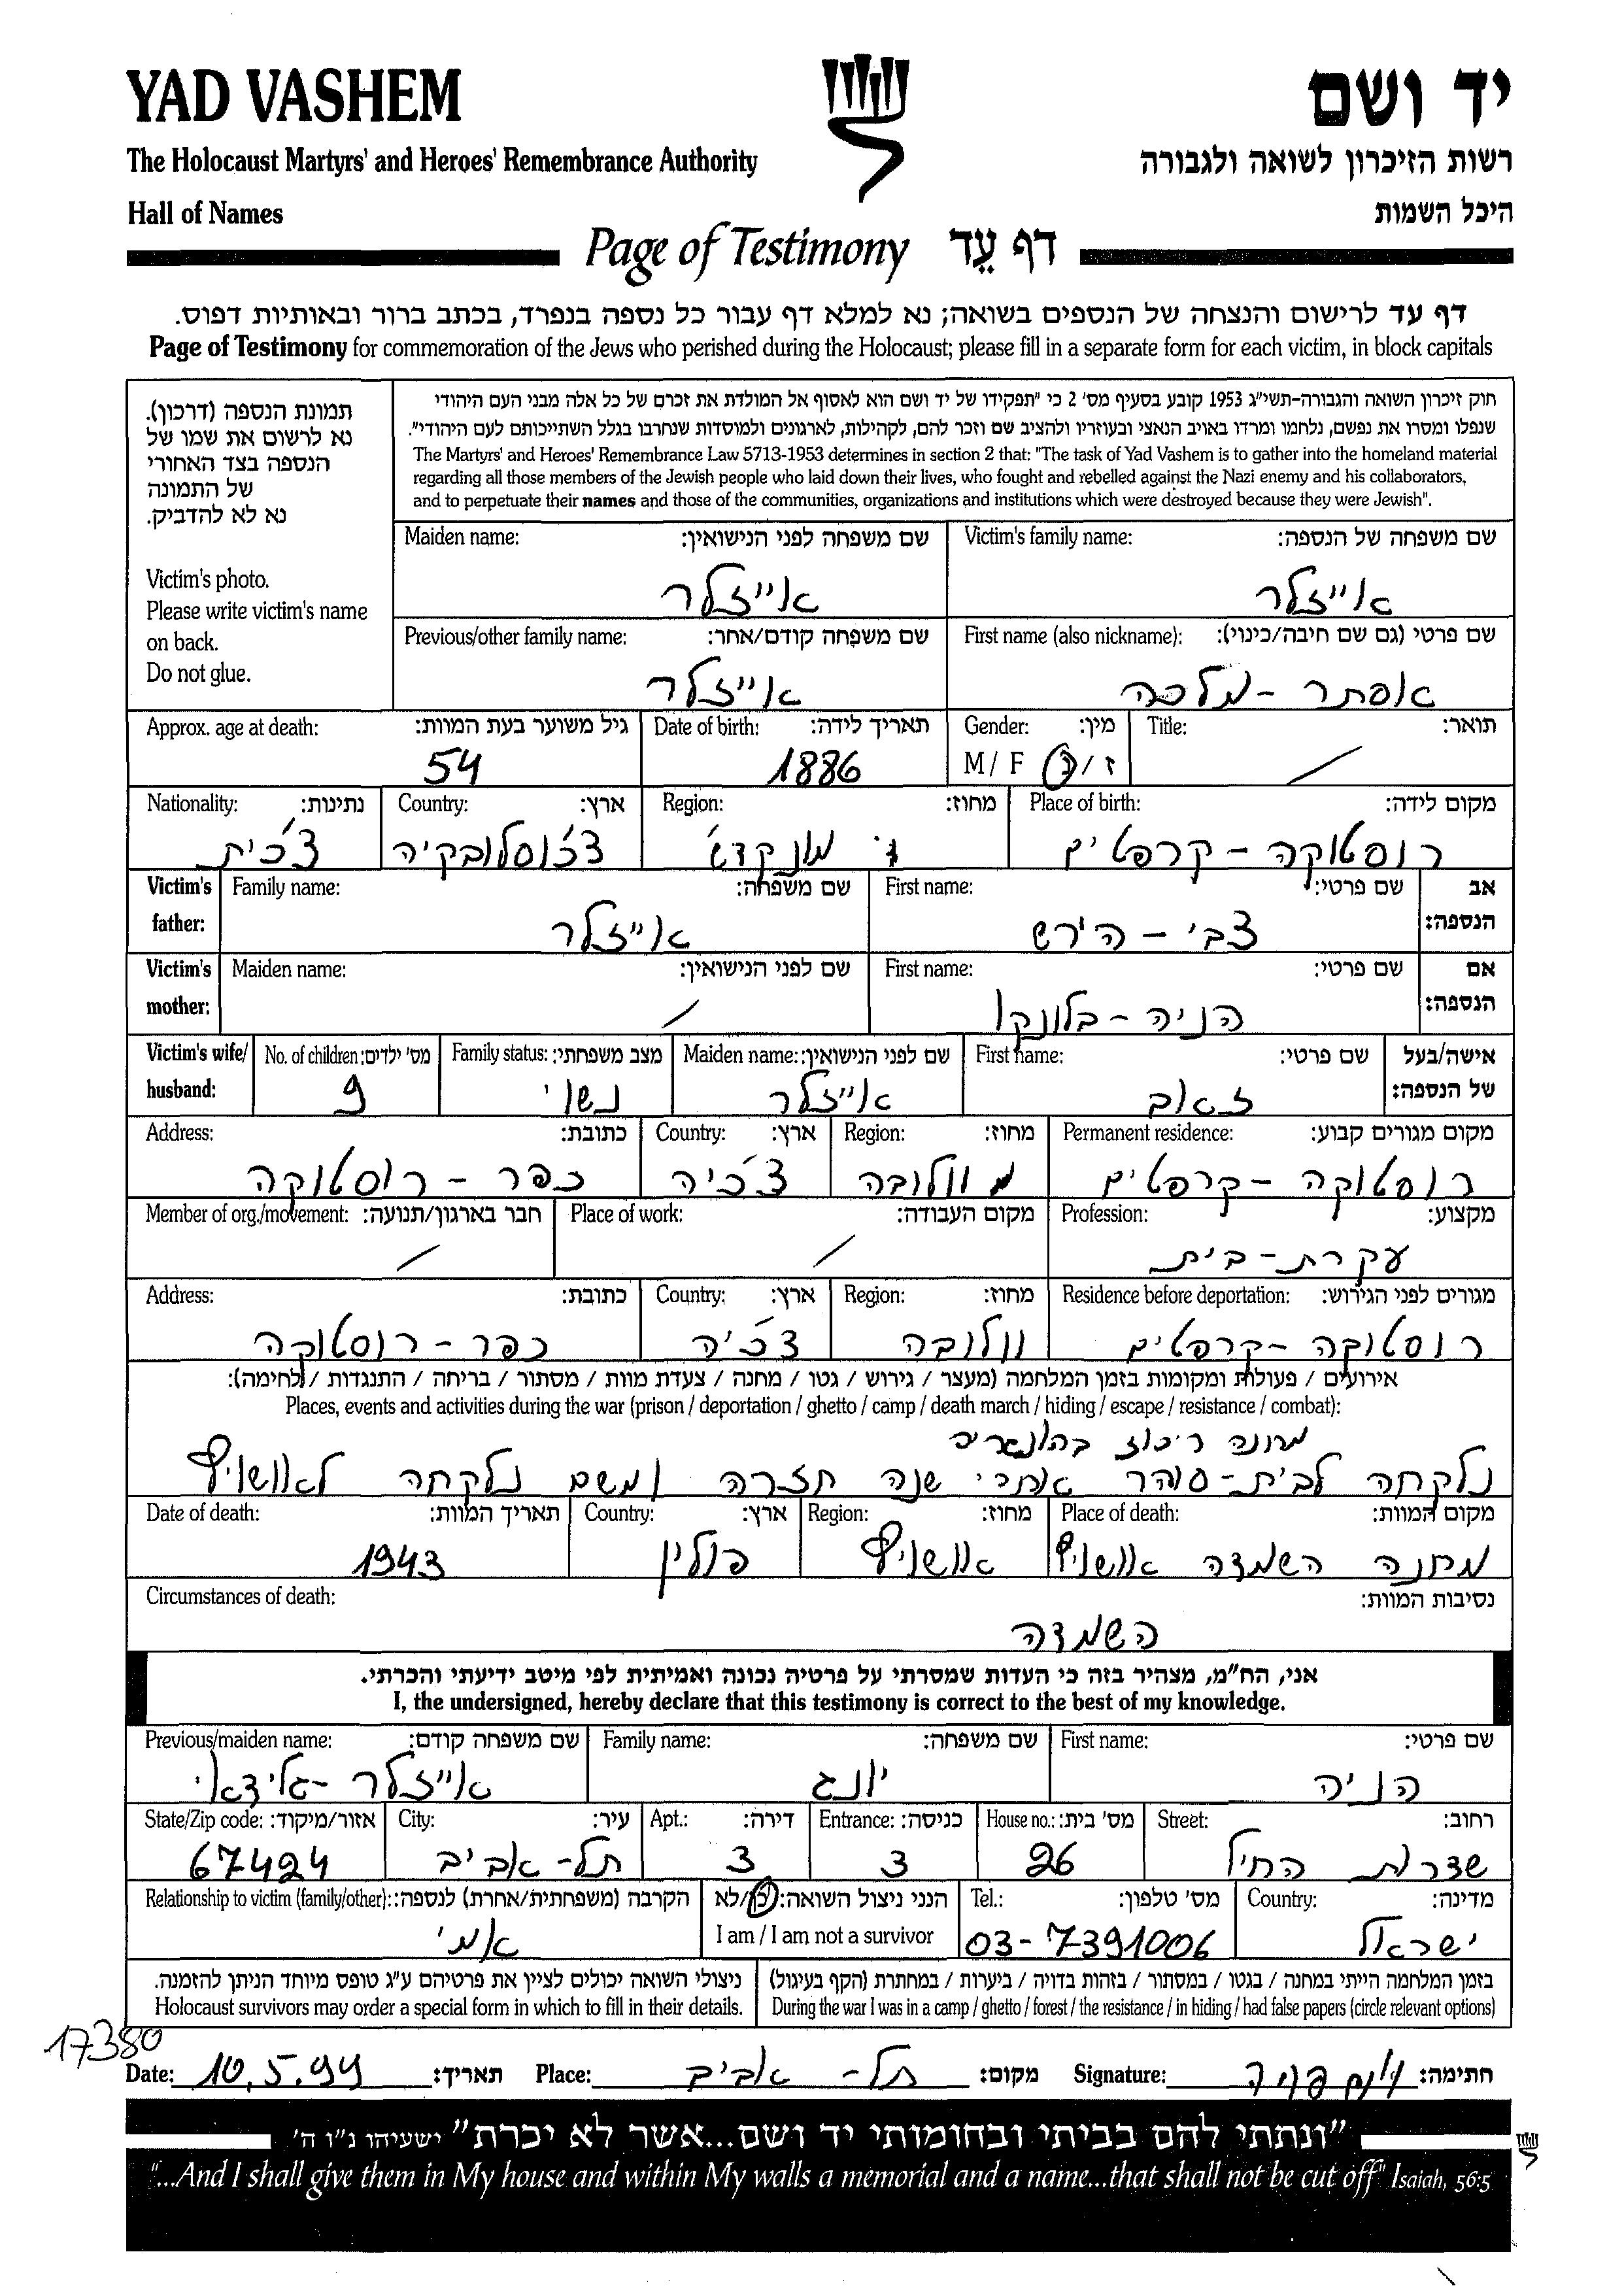 YAD VASHEM
יד ושם
The Holocaust Martyrs' and Heroes' Remembrance Authority
רשות הזיכרון לשואה ולגבורה
Hall of Names
היכל השמות
Page of Testimony דף עֵד
דף עד לרישום והנצחה של הנספים בשואה; נא למלא דף עבור כל נספה בנפרד, בכתב ברור ובאותיות דפוס.
Page of Testimony for commemoration of the Jews who perished during the Holocaust; please fill in a separate form for each victim, in block capitals
תמונת הנספה (דרכון).
נא לרשום את שמו של
הנספה בצד האחורי
של התמונה
נא לא להדביק.
Victim's photo.
Please write victim's name
on back.
Do not glue.
חוק זיכרון השואה והגבורה-תשי"ג 1953 קובע בסעיף מס' 2 כי "תפקידו של יד ושם הוא לאסוף אל המולדת את זכרם של כל אלה מבני העם היהודי
שנפלו ומסרו את נפשם, נלחמו ומרדו באויב הנאצי ובעוזריו ולהציב שם וזכר להם, לקהילות, לארגונים ולמוסדות שנחרבו בגלל השתייכותם לעם היהודי".
The Martyrs' and Heroes' Remembrance Law 5713-1953 determines in section 2 that: "The task of Yad Vashem is to gather into the homeland material
regarding all those members of the Jewish people who laid down their lives, who fought and rebelled against the Nazi enemy and his collaborators,
and to perpetuate their names and those of the communities, organizations and institutions which were destroyed because they were Jewish".
Victim's family name: שם משפחה של הנספה:
אייזלר
Maiden name: שם משפחה לפני הנישואין:
אייזלר
First name (also nickname): שם פרטי (גם שם חיבה/כינוי):
אסתר - מלכה
Previous/other family name: שם משפחה קודם/אחר:
אייזלר
Title: תואר:
/
Gender: מין:
M / F ז / נ
Date of birth: תאריך לידה:
1886
Approx. age at death: גיל משוער בעת המוות:
54
Place of birth: מקום לידה:
רוסטוקה - קרפטים
Region: מחוז:
מונקדש
Country: ארץ:
צ'כוסלובקיה
Nationality: נתינות:
צ'כית
Victim's father: אב הנספה:
First name: שם פרטי:
צבי - הירש
Family name: שם משפחה:
אייזלר
Victim's mother: אם הנספה:
First name: שם פרטי:
הניה - בלונקו
Maiden name: שם לפני הנישואין:
/
Victim's wife/ husband: אישה/בעל של הנספה:
First name: שם פרטי:
זאב
Maiden name: שם לפני הנישואין:
אייזלר
Family status: מצב משפחתי:
נשוי
No. of children: מס' ילדים:
9
Permanent residence: מקום מגורים קבוע:
רוסטוקה - קרפטים
Region: מחוז:
וולובה
Country: ארץ:
צ'כיה
Address: כתובת:
כפר - רוסטוקה
Profession: מקצוע:
עקרת - בית
Place of work: מקום העבודה:
/
Member of org./movement: חבר בארגון/תנועה:
/
Residence before deportation: מגורים לפני הגירוש:
רוסטוקה - קרפטים
Region: מחוז:
וולובה
Country: ארץ:
צ'כיה
Address: כתובת:
כפר - רוסטוקה
אירועים / פעולות ומקומות בזמן המלחמה (מעצר / גירוש / גטו / מחנה / צעדת מוות / מסתור / בריחה / התנגדות / לחימה):
Places, events and activities during the war (prison / deportation / ghetto / camp / death march / hiding / escape / resistance / combat):
מחנה ריכוז בהונגריה
נלקחה לבית-סוהר אחרי שנה חזרה ומשם נלקחה לאושויץ
Place of death: מקום המוות:
מחנה השמדה אושויץ
Region: מחוז:
אושויץ
Country: ארץ:
פולין
Date of death: תאריך המוות:
1943
Circumstances of death: נסיבות המוות:
השמדה
אני, הח"מ, מצהיר בזה כי העדות שמסרתי על פרטיה נכונה ואמיתית לפי מיטב ידיעתי והכרתי.
I, the undersigned, hereby declare that this testimony is correct to the best of my knowledge.
First name: שם פרטי:
הניה
Family name: שם משפחה:
יונג
Previous/maiden name: שם משפחה קודם:
אייזלר - גלידאי
Street: רחוב:
שדרות החיל
House no.: מס' בית:
26
Entrance: כניסה:
3
Apt.: דירה:
3
City: עיר:
תל - אביב
State/Zip code: אזור/מיקוד:
67424
Country: מדינה:
ישראל
Tel.: מס' טלפון:
03-7391006
הנני ניצול השואה: כן/לא
I am / I am not a survivor
Relationship to victim (family/other): הקרבה (משפחתית/אחרת) לנספה:
אמי
בזמן המלחמה הייתי במחנה / בגטו / במסתור / בזהות בדויה / ביערות / במחתרת (הקף בעיגול)
During the war I was in a camp / ghetto / forest / the resistance / in hiding / had false papers (circle relevant options)
ניצולי השואה יכולים לציין את פרטיהם ע"ג טופס מיוחד הניתן להזמנה.
Holocaust survivors may order a special form in which to fill in their details.
17380
Date: 10.5.99 תאריך: Place: תל - אביב מקום: Signature: יונג הניה חתימה:
"ונתתי להם בביתי ובחומותי יד ושם...אשר לא יכרת" ישעיהו נ"ו ה'
"...And I shall give them in My house and within My walls a memorial and a name...that shall not be cut off" Isaiah, 56:5